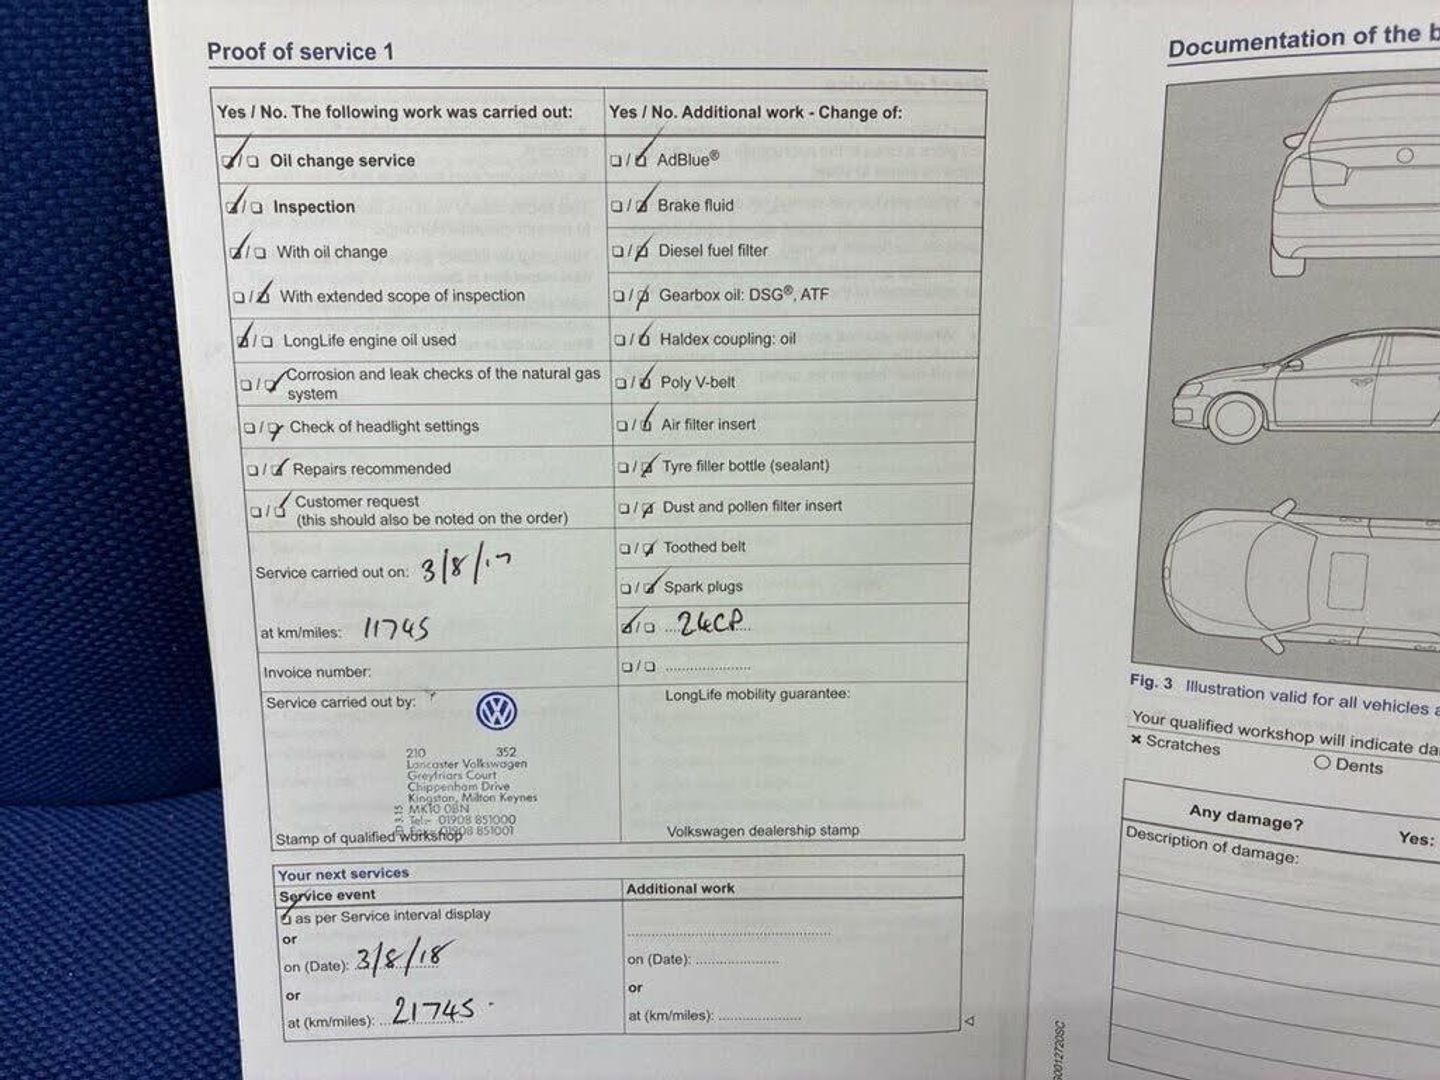 Proof of service 1
Yes / No. The following work was carried out:
☑/☐ Oil change service
☑/☐ Inspection
☑/☐ With oil change
☐/☑ With extended scope of inspection
☑/☐ LongLife engine oil used
☐/☑ Corrosion and leak checks of the natural gas
system
☐/☑ Check of headlight settings
☐/☑ Repairs recommended
☐/☑ Customer request
(this should also be noted on the order)
Service carried out on: 3/8/17
at km/miles: 11745
Invoice number:
Service carried out by:
VW
210 352
Lancaster Volkswagen
Greyfriars Court
Chippenham Drive
Kingston, Milton Keynes
MK10 0BN
Tel:- 01908 851000
Fax:- 01908 851001
3.15
Stamp of qualified workshop
Yes / No. Additional work - Change of:
☐/☑ AdBlue®
☐/☑ Brake fluid
☐/☑ Diesel fuel filter
☐/☑ Gearbox oil: DSG®, ATF
☐/☑ Haldex coupling: oil
☐/☑ Poly V-belt
☐/☑ Air filter insert
☐/☑ Tyre filler bottle (sealant)
☐/☑ Dust and pollen filter insert
☐/☑ Toothed belt
☐/☑ Spark plugs
☑/☐ ...24CP...
☐/☐ .....................
LongLife mobility guarantee:
Volkswagen dealership stamp
Your next services
Service event
☑ as per Service interval display
or
on (Date): 3/8/18
or
at (km/miles): 21745
Additional work
on (Date): .....................
or
at (km/miles): .....................
Documentation of the b
Fig. 3 Illustration valid for all vehicles a
Your qualified workshop will indicate da
× Scratches
○ Dents
Any damage? Yes:
Description of damage: